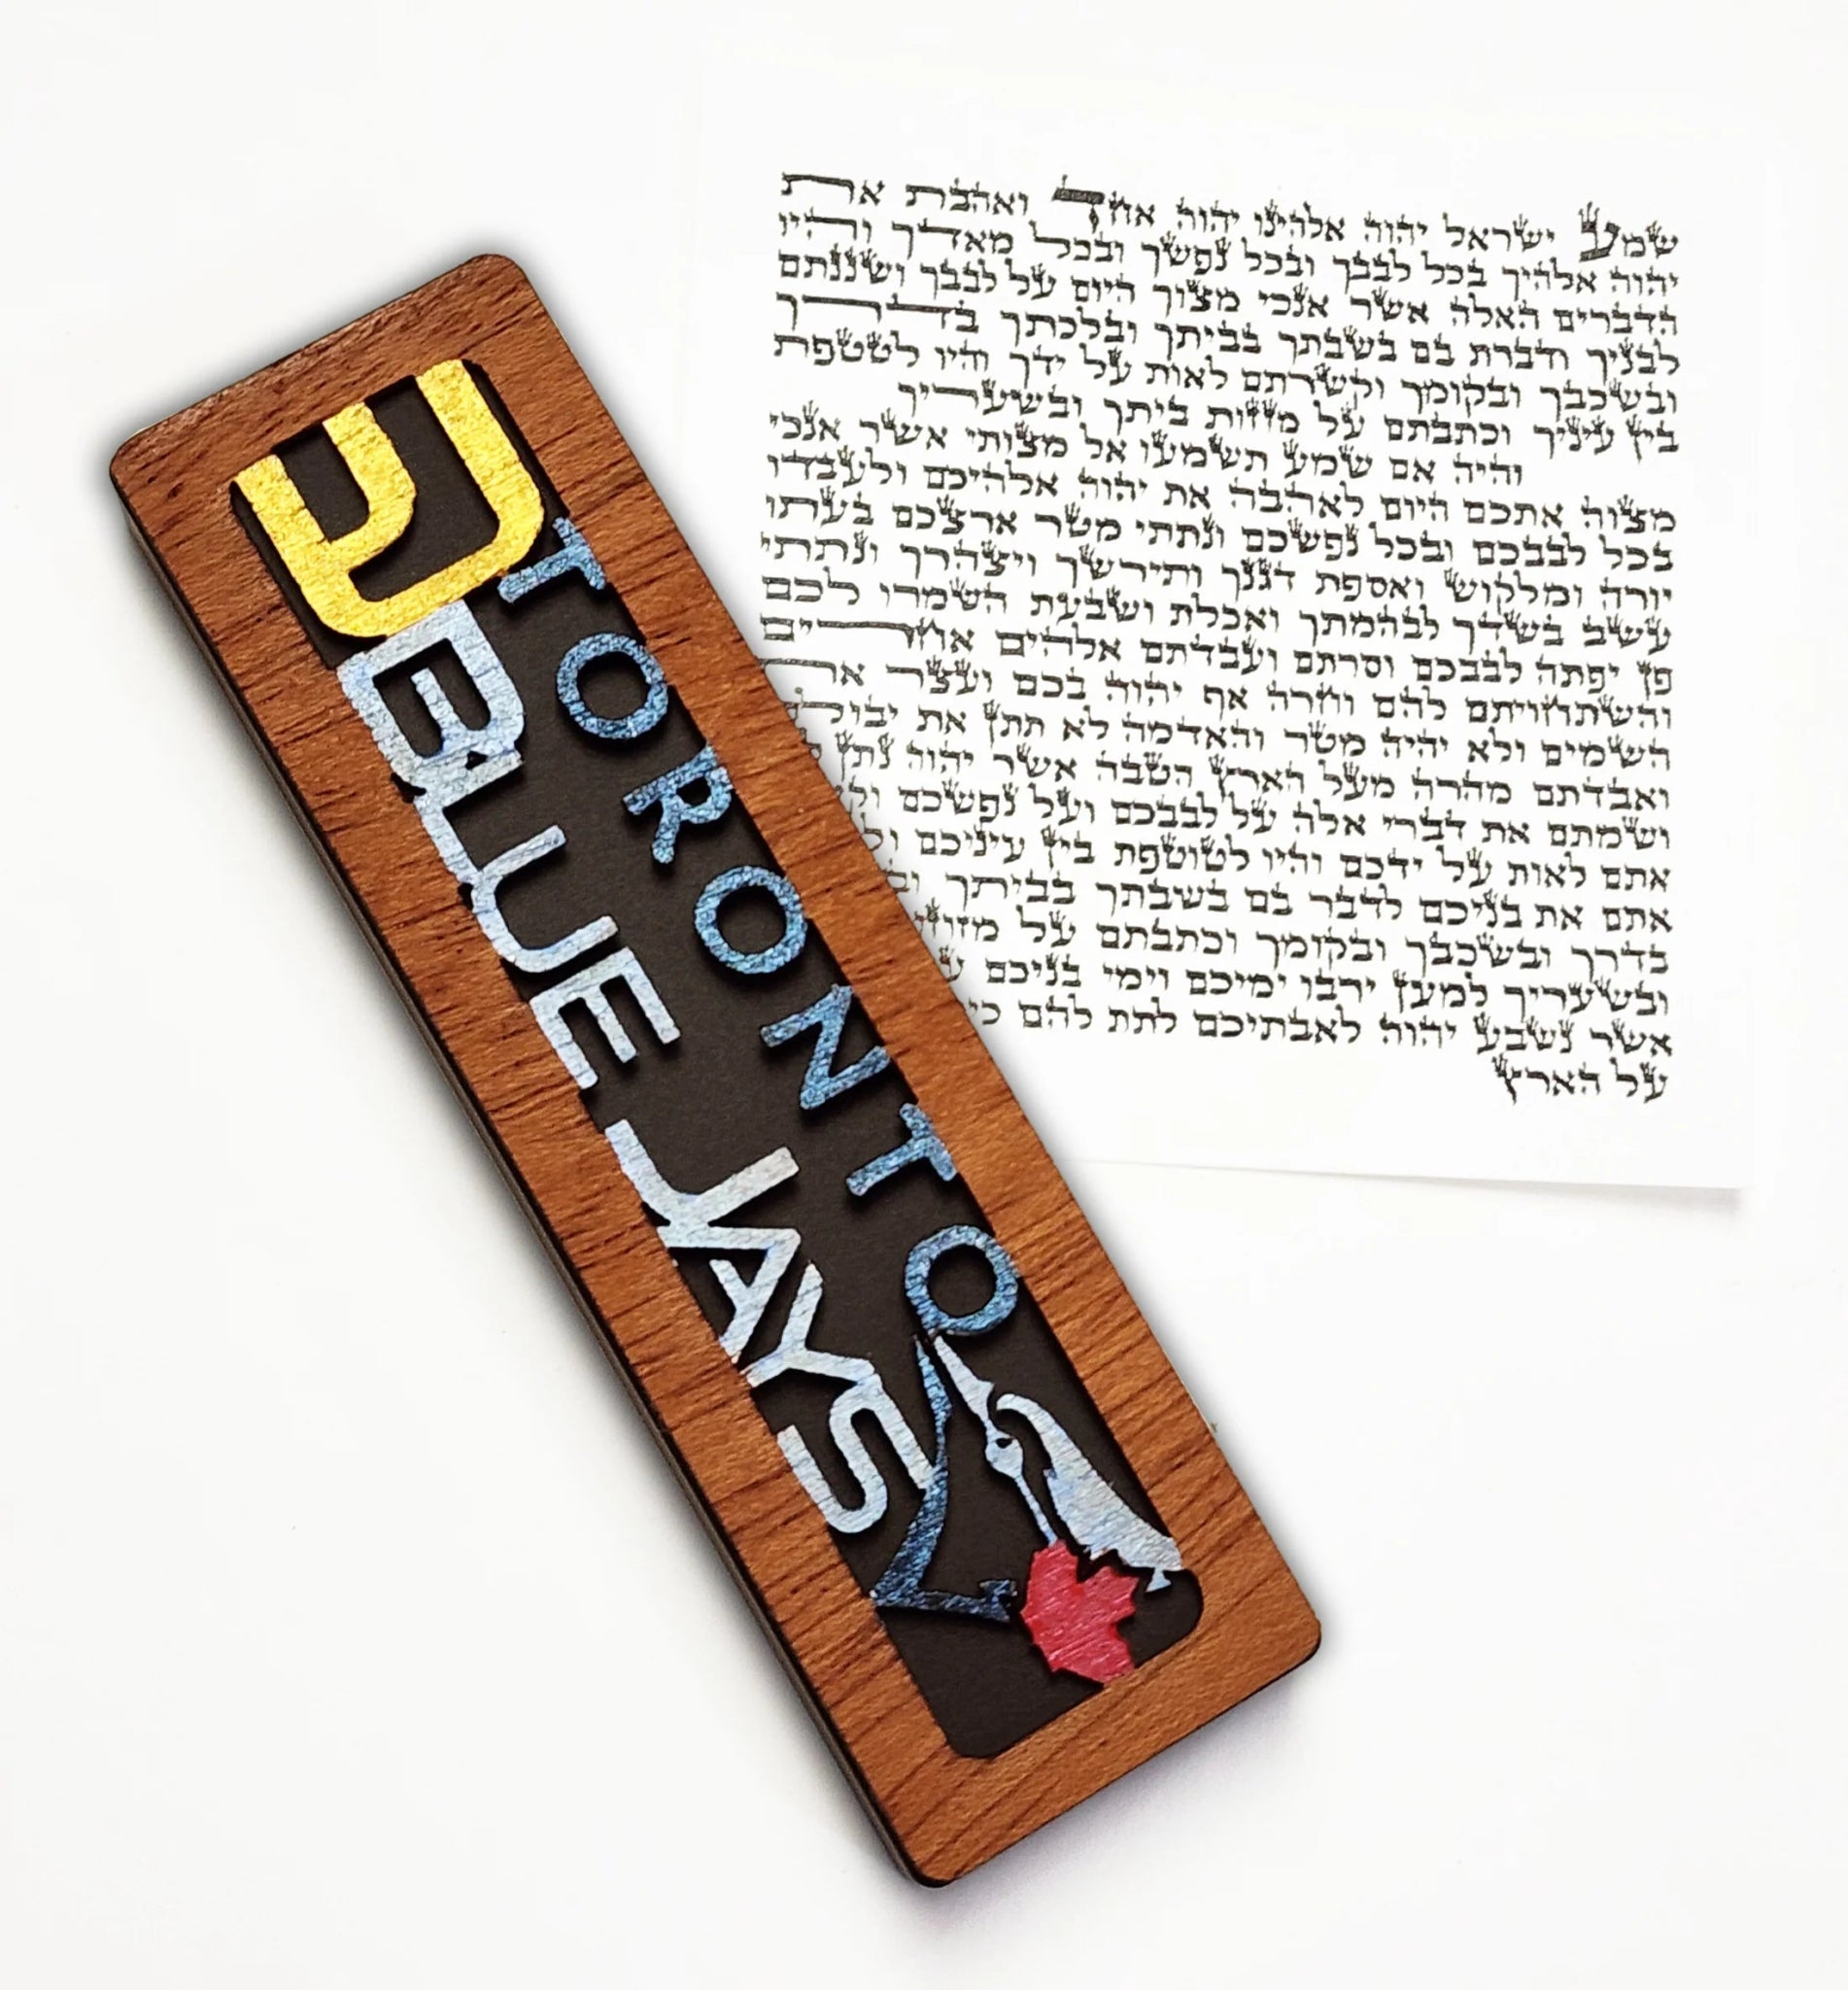 ש
TORONTO
BLUE JAYS
שמע ישראל יהוה אלהינו יהוה אחד ואהבת את
יהוה אלהיך בכל לבבך ובכל נפשך ובכל מאדך והיו
הדברים האלה אשר אנכי מצוך היום על לבבך ושננתם
לבניך ודברת בם בשבתך בביתך ובלכתך בדרך
ובשכבך ובקומך וקשרתם לאות על ידך והיו לטטפת
בין עיניך וכתבתם על מזזות ביתך ובשעריך
והיה אם שמע תשמעו אל מצותי אשר אנכי
מצוה אתכם היום לאהבה את יהוה אלהיכם ולעבדו
בכל לבבכם ובכל נפשכם ונתתי מטר ארצכם בעתו
יורה ומלקוש ואספת דגנך ותירשך ויצהרך ונתתי
עשב בשדך לבהמתך ואכלת ושבעת השמרו לכם
פן יפתה לבבכם וסרתם ועבדתם אלהים אחרים
והשתחויתם להם וחרה אף יהוה בכם ועצר את
השמים ולא יהיה מטר והאדמה לא תתן את יבולה
ואבדתם מהרה מעל הארץ הטבה אשר יהוה נתן
ושמתם את דברי אלה על לבבכם ועל נפשכם
אתם לאות על ידכם והיו לטוטפת בין עיניכם
אתם את בניכם לדבר בם בשבתך בביתך
בדרך ובשכבך ובקומך וכתבתם על
ובשעריך למען ירבו ימיכם וימי בניכם
אשר נשבע יהוה לאבתיכם לתת להם
על הארץ